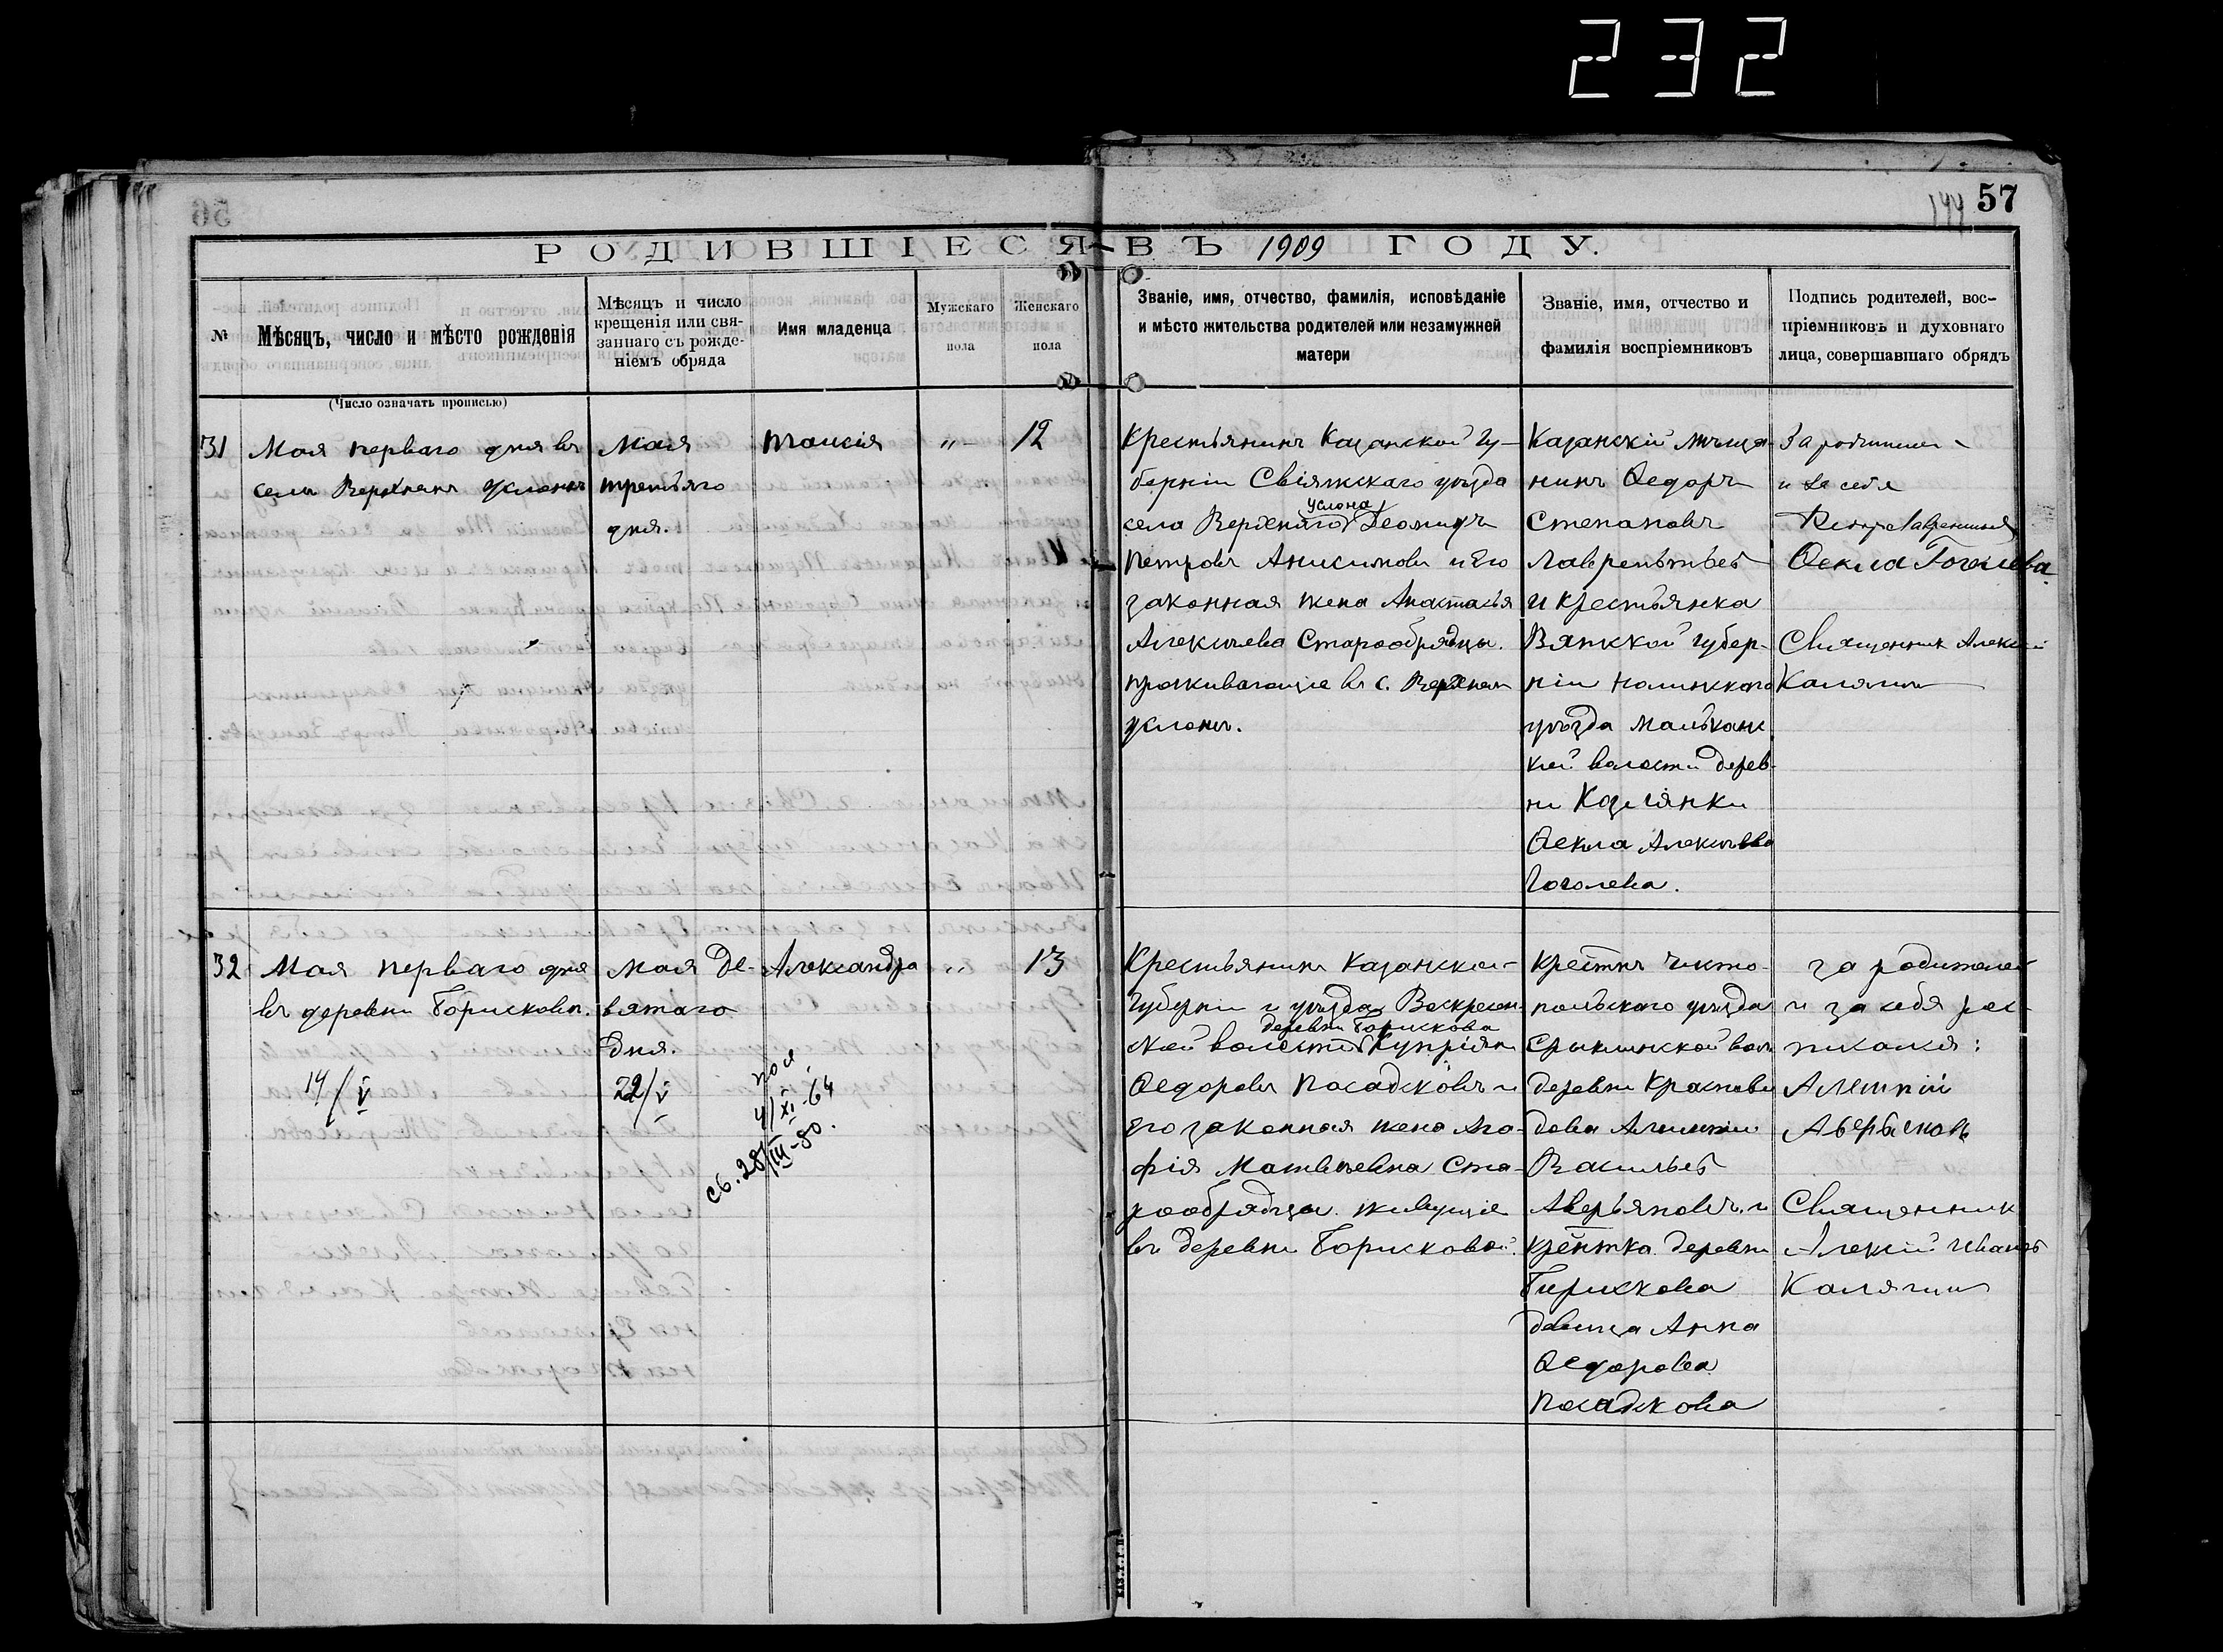 232
57
144
РОДИВШІЕСЯ ВЪ 1909 ГОДУ.
№
Мѣсяцъ, число и мѣсто рожденія
Мѣсяцъ и число
крещенія или свя-
заннаго съ рожде-
ніемъ обряда
Имя младенца
Мужскаго
пола
Женскаго
пола
Званіе, имя, отчество, фамилія, исповѣданіе
и мѣсто жительства родителей или незамужней
матери
Званіе, имя, отчество и
фамилія воспріемниковъ
Подпись родителей, вос-
пріемниковъ и духовнаго
лица, совершавшаго обрядъ
(Число означать прописью)
31
Мая перваго дня въ
селѣ Верхнемъ Услонѣ
Мая
третьяго
дня.
Таисія
"
12
Крестьянинъ Казанской гу-
берніи Свіяжскаго уѣзда
услона
села Верхняго Леонидъ
Петровъ Анисимовъ и его
законная жена Анастасья
Алексѣева Старообрядцы.
проживающіе въ с. Верхнемъ
Услонѣ.
Казанскій мѣща-
нинъ Ѳедоръ
Степановъ
Лаврентьевъ
и крестьянка
Вятской губер-
ніи Нолинскаго
уѣзда
волости дерев-
ни Козлянки
Ѳекла Алексѣева
Гоголева.
За родителей
и за себя
Лаврентьевъ
Ѳекла Гоголева
Священникъ Алексій
Калягинъ
32
Мая перваго дня
въ деревнѣ Борисковѣ.
14/V
Мая де-
вятаго
дня.
22/V
Александра
"
13
4/XI-64
св. 28/III-80.
Крестьянинъ Казанской
губерніи и уѣзда Воскресен-
деревни Борискова
ской волости Купріянъ
Ѳедоровъ Посадсковъ и
его законная жена Ага-
фія Матвѣевна Ста-
рообрядцы. живущіе
въ деревнѣ Борисковой.
Крестнъ Чисто-
польскаго уѣзда
волъ
деревни
Васильевъ
Аверьяновъ. и
деревни
Борискова
девица Анна
Ѳедорова
Посадскова
за родителей
и за себя рос-
писался:
Аверьяновъ
Священникъ
Алексій Ивановъ
Калягинъ